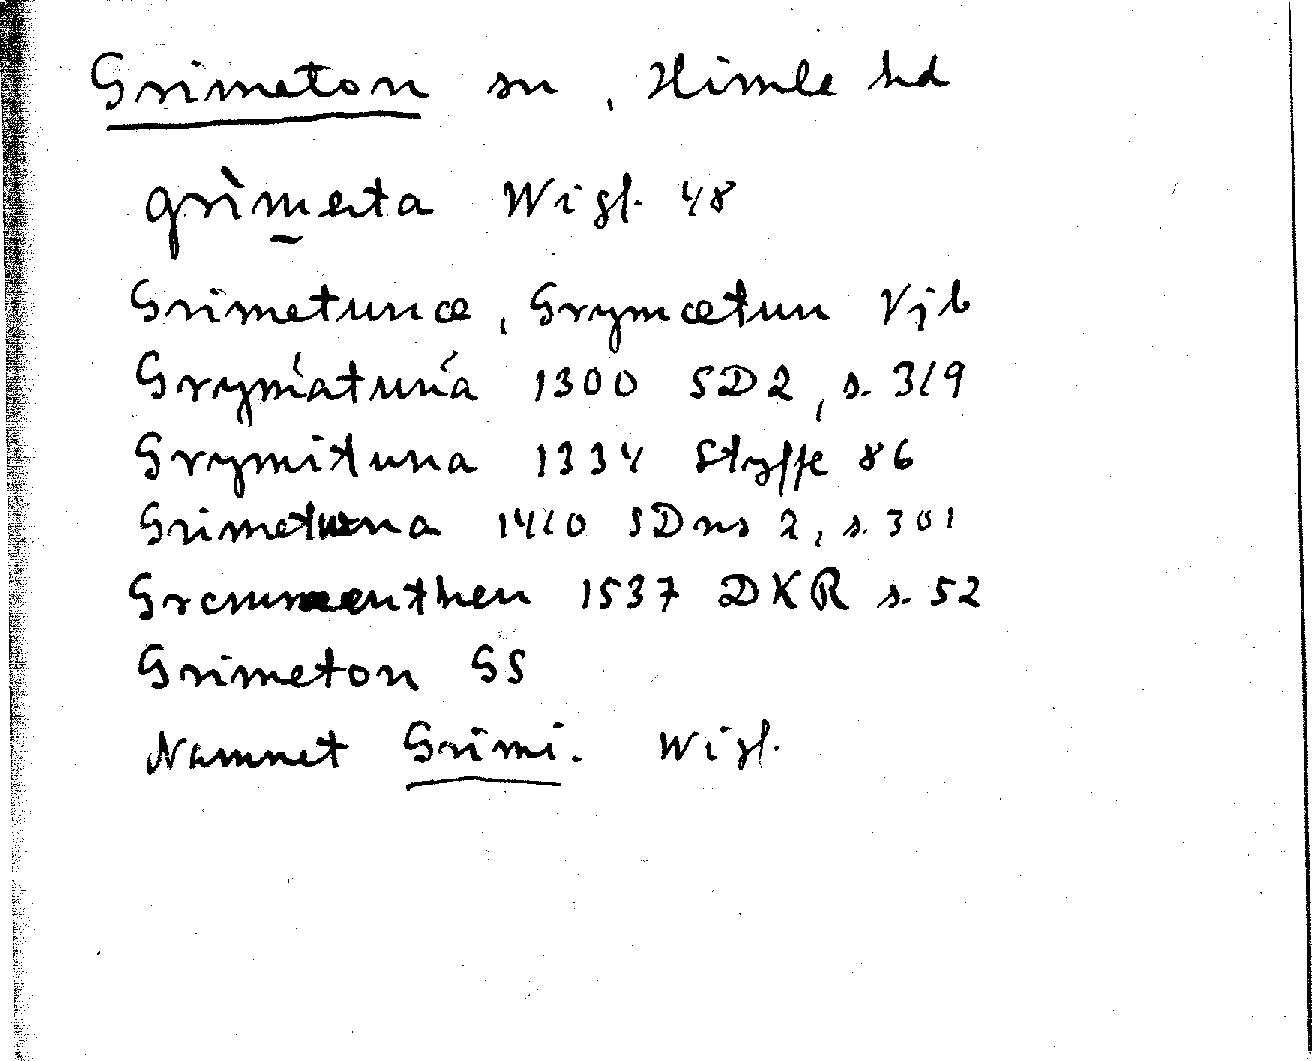 Grimeton sn, Himle hd
grìmeta Wigf. 48
Grimetunæ, Grymætun Vjb
Grymatuna 1300 SD2, s. 319
Grymituna 1334 Styffe 86
Grimetuna 1410 SDns 2, s. 301
1537 DKR s. 52
Grimeton GS
Namnet Grimi. Wigf.